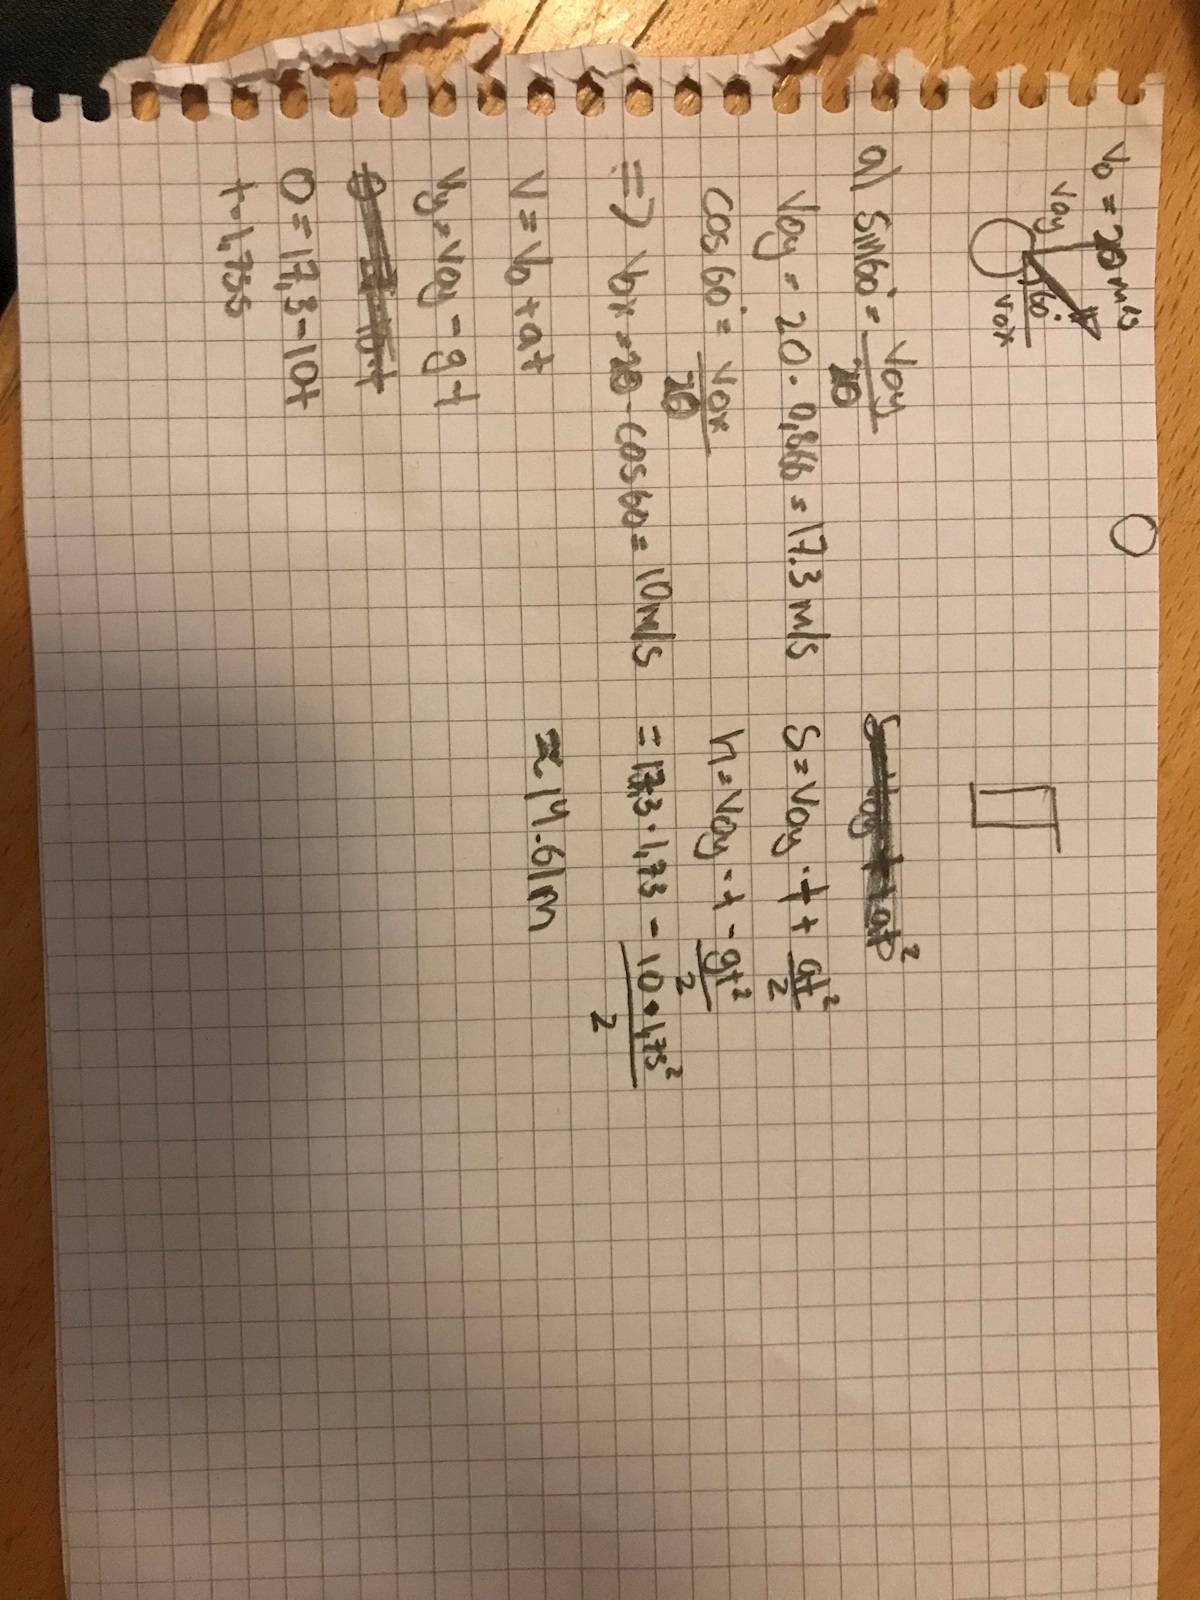 V₀ = 20 m/s
V₀y
60°
V₀x
a) sin60° = V₀y / 20
V₀y = 20 · 0,866 = 17.3 m/s
cos 60° = V₀x / 20
=> V₀x = 20 · cos 60 = 10 m/s
V = V₀ + at
Vy = V₀y - gt
0 = 17,3 - 10t
t = 1,73s
S = V₀y · t + at² / 2
h = V₀y · t - gt² / 2
= 17,3 · 1,73 - 10 · 1,73² / 2
≈ 14.61m